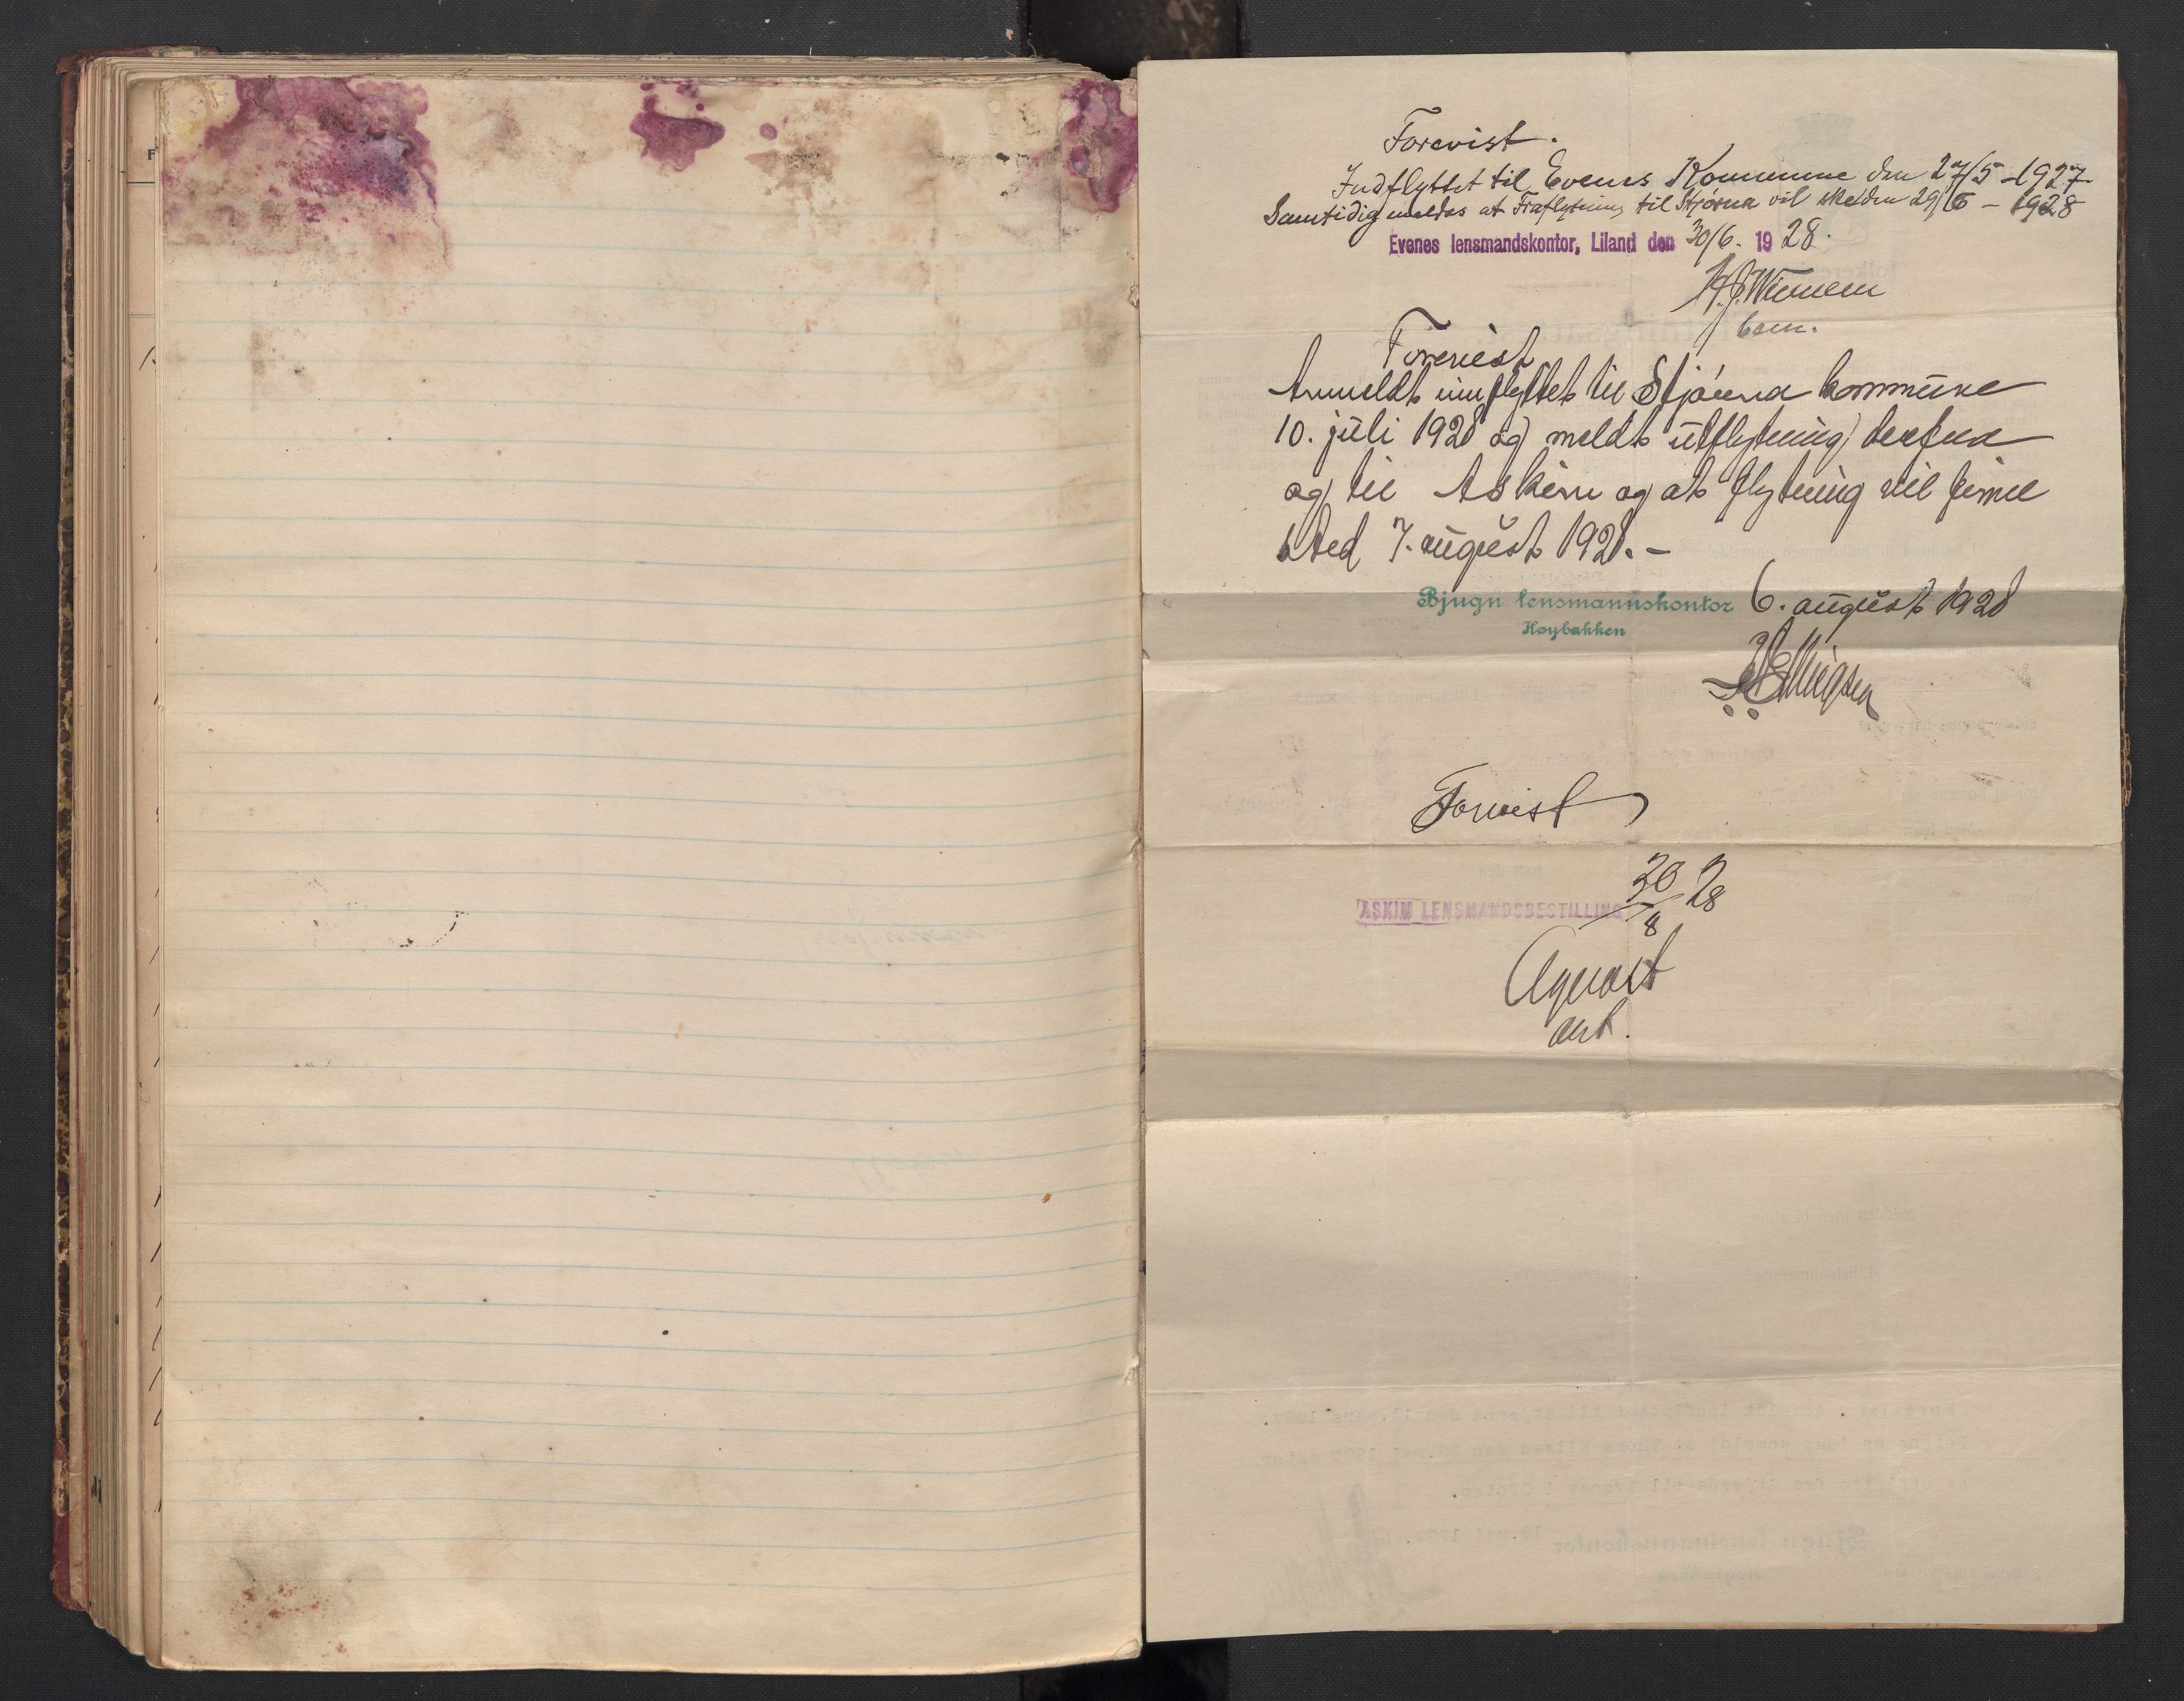 Forevist.
Indflyttet til Evenes Kommune den 27/5 - 1927
Samtidig meldes at Fraflytning til Stjørna vil skje den 29/6 - 1928
Evenes lensmandskontor, Liland den 30/6. 1928.
Forevist
Anmeldt innflyttet til Stjørna kommune
10. juli 1928 og meldt utflytning derfra
og til Askim og at flytning vil finne
sted 7. august 1928. -
Bjugn lensmannskontor 6. august 1928
Høybakken
Ellingsen
Forevist
ASKIM LENSMANDSBESTILLING 20/8 28